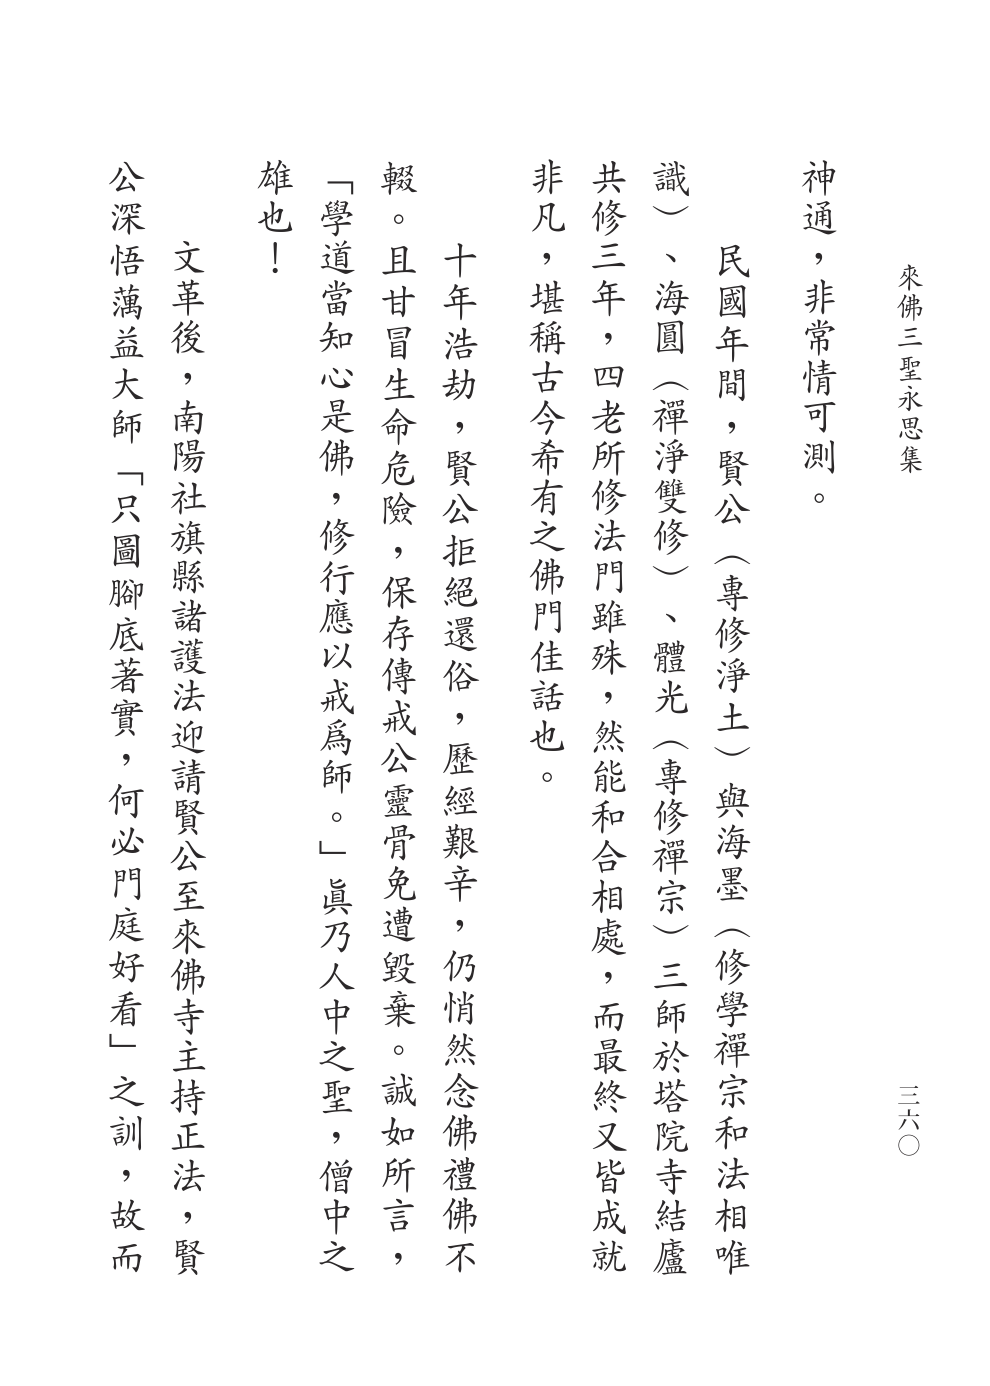 來佛三聖永思集
三六〇
神通，非常情可測。
民國年間，賢公（專修淨土）與海墨（修學禪宗和法相唯
識）、海圓（禪淨雙修）、體光（專修禪宗）三師於塔院寺結廬
共修三年，四老所修法門雖殊，然能和合相處，而最終又皆成就
非凡，堪稱古今希有之佛門佳話也。
十年浩劫，賢公拒絕還俗，歷經艱辛，仍悄然念佛禮佛不
輟。且甘冒生命危險，保存傳戒公靈骨免遭毀棄。誠如所言，
「學道當知心是佛，修行應以戒爲師。」眞乃人中之聖，僧中之
雄也！
文革後，南陽社旗縣諸護法迎請賢公至來佛寺主持正法，賢
公深悟蕅益大師「只圖腳底著實，何必門庭好看」之訓，故而